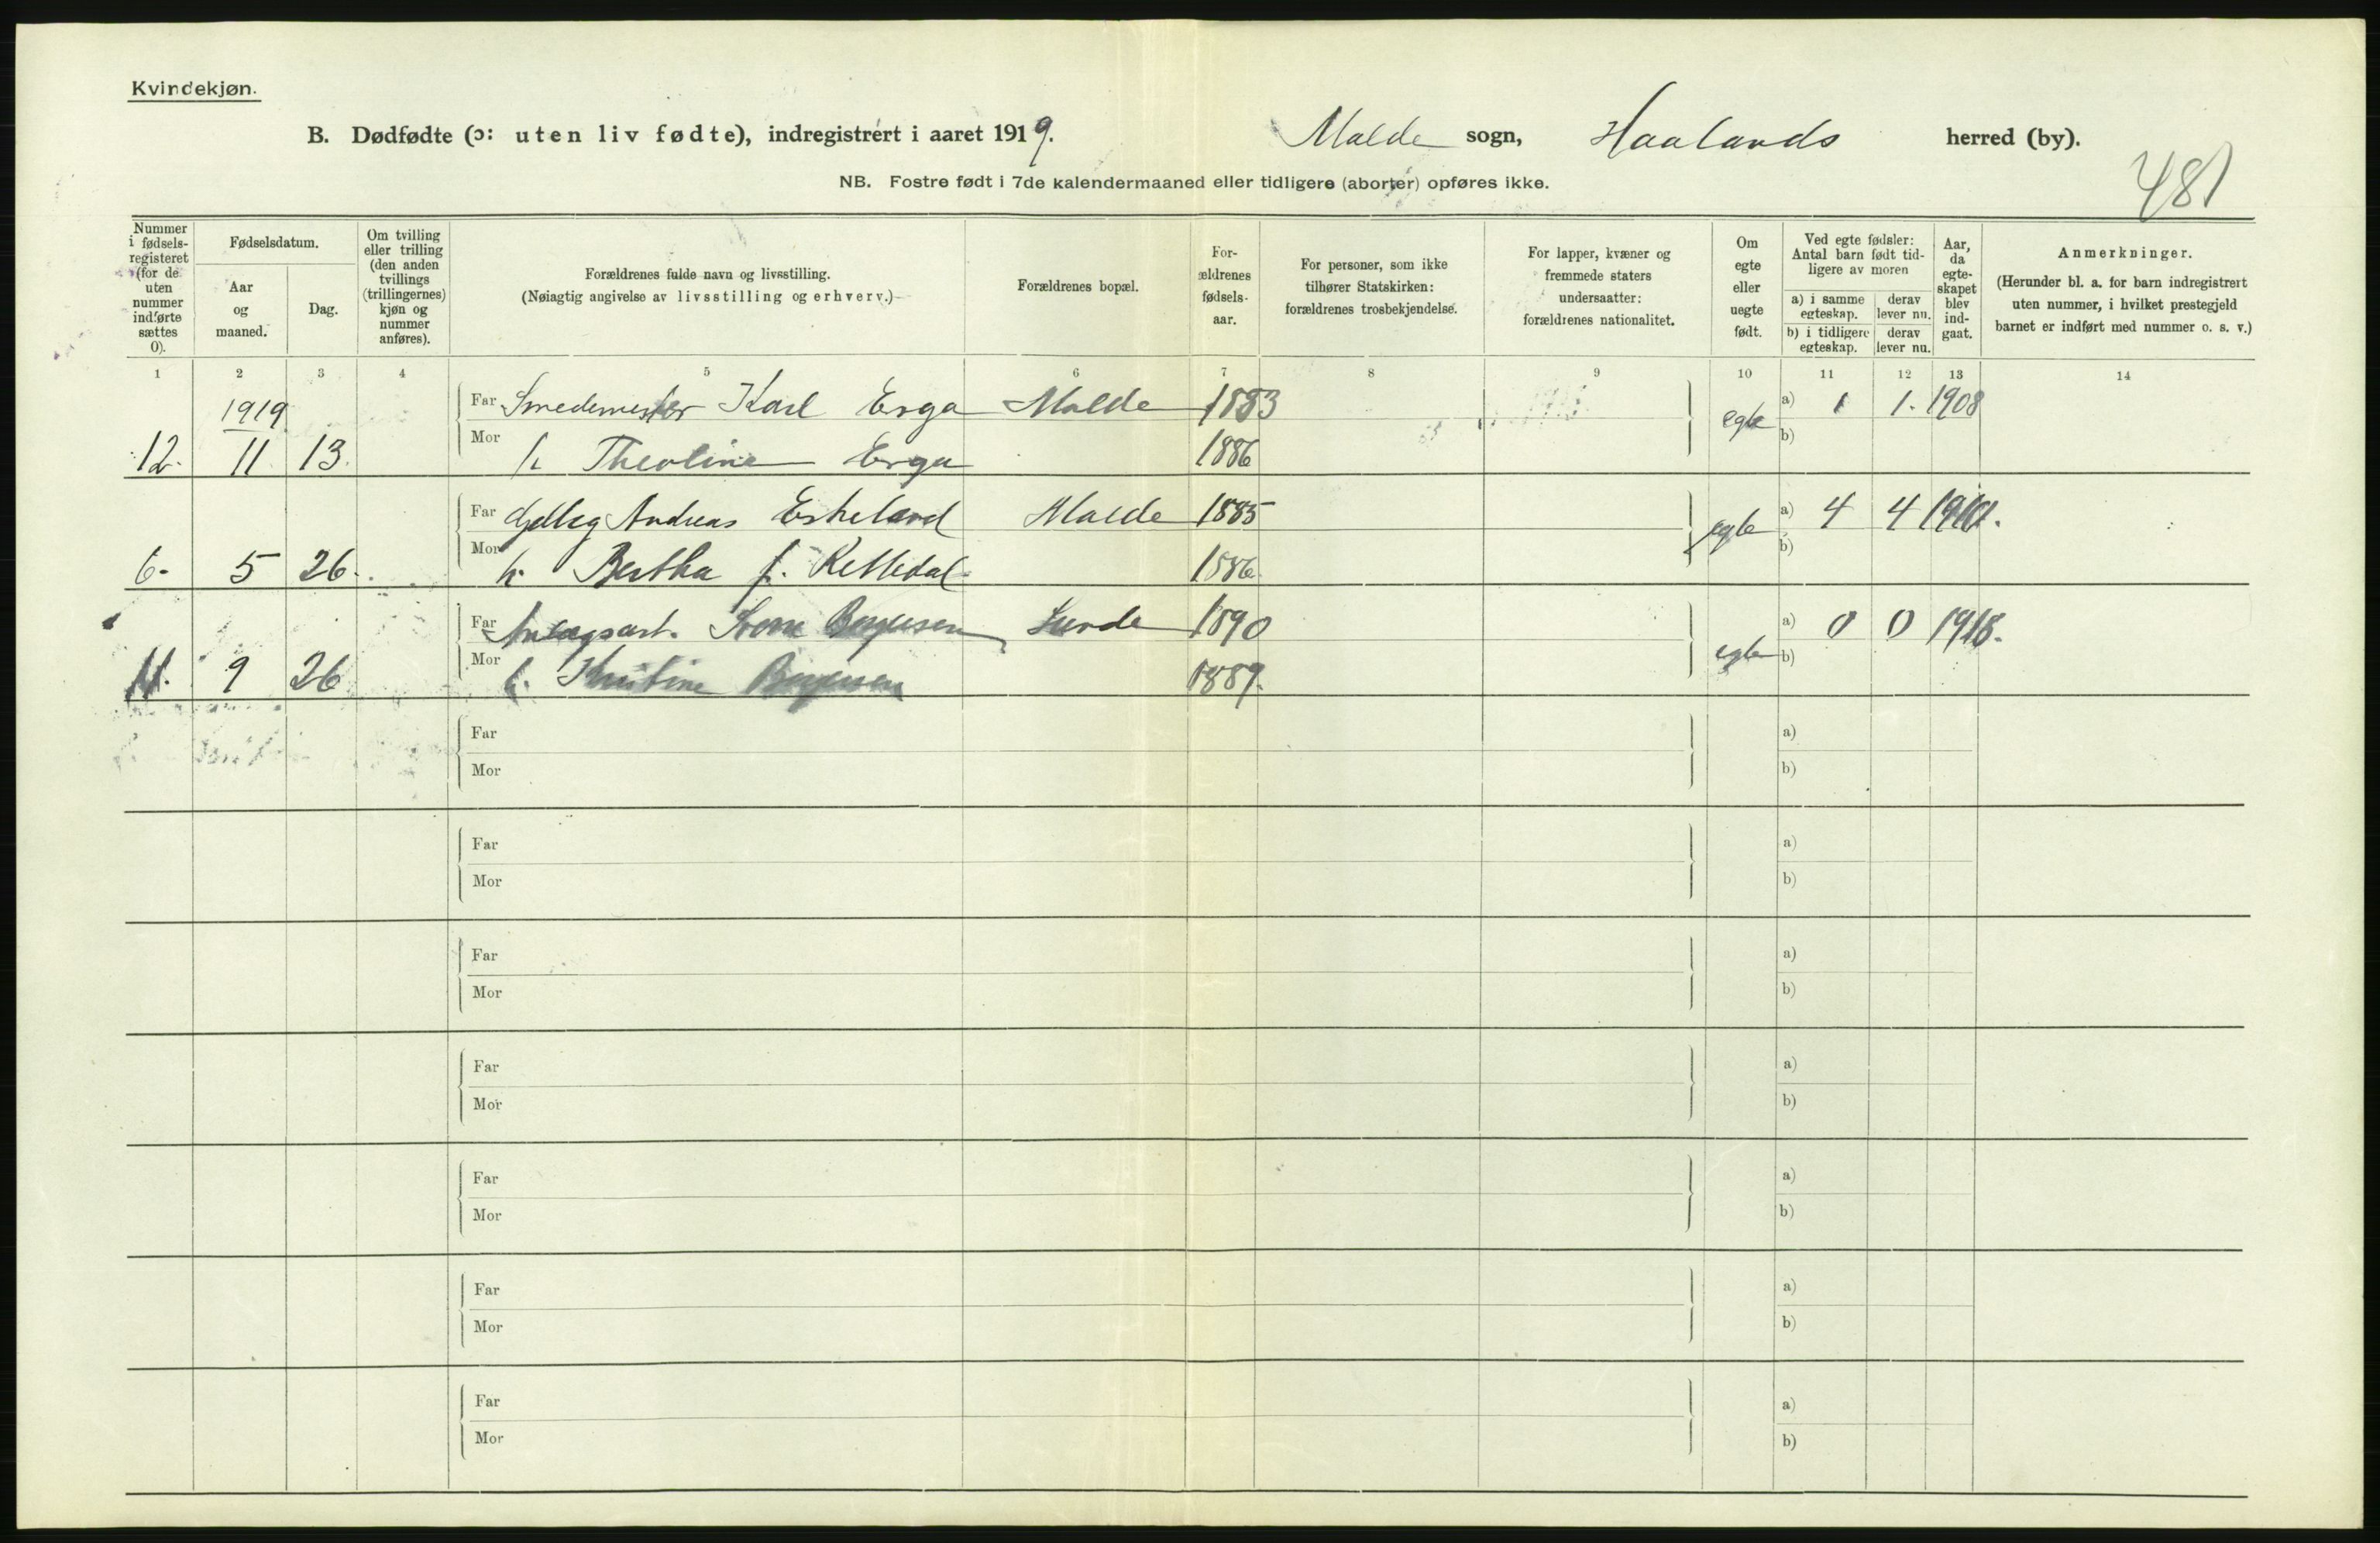 Kvindekjøn.
B. Dødfødte (ɔ: uten liv fødte), indregistrert i aaret 1919. Malde sogn, Haalands herred (by).
NB. Fostre født i 7de kalendermaaned eller tidligere (aborter) opføres ikke.
481
Nummer i fødsels-registeret (for de uten nummer indførte sættes 0).
Fødselsdatum.
Aar og maaned.
Dag.
Om tvilling eller trilling (den anden tvillings (trillingernes) kjøn og nummer anføres).
Forældrenes fulde navn og livsstilling.
(Nøiagtig angivelse av livsstilling og erhverv.)
Forældrenes bopæl.
For-ældrenes fødsels-aar.
For personer, som ikke tilhører Statskirken: forældrenes trosbekjendelse.
For lapper, kvæner og fremmede staters undersaatter: forældrenes nationalitet.
Om egte eller uegte født.
Ved egte fødsler: Antal barn født tid-ligere av moren
a) i samme egteskap.
derav lever nu.
b) i tidligere egteskap.
derav lever nu.
Aar, da egte-skapet blev ind-gaat.
Anmerkninger.
(Herunder bl. a. for barn indregistrert uten nummer, i hvilket prestegjeld barnet er indført med nummer o. s. v.)
1 2 3 4 5 6 7 8 9 10 11 12 13 14
1919
Far Smedemester Karl Erga Malde 1883 egte a) 1 1. 1908
12. 11. 13. Mor h. Theoline Erga 1886 b)
Far Andreas Eskeland Malde 1885 egte a) 4 4
6. 5 26. Mor h. Bertha f. Kelledal 1886. b)
Far Anlægsarb. Sunde 1890 egte a) 0 0 1918.
11. 9 26 Mor h. Kristine 1889. b)
Far a)
Mor b)
Far a)
Mor b)
Far a)
Mor b)
Far a)
Mor b)
Far a)
Mor b)
Far a)
Mor b)
Far a)
Mor b)